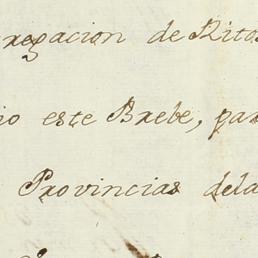 regacion de Ritos
io este Brebe, par
Provincias dela